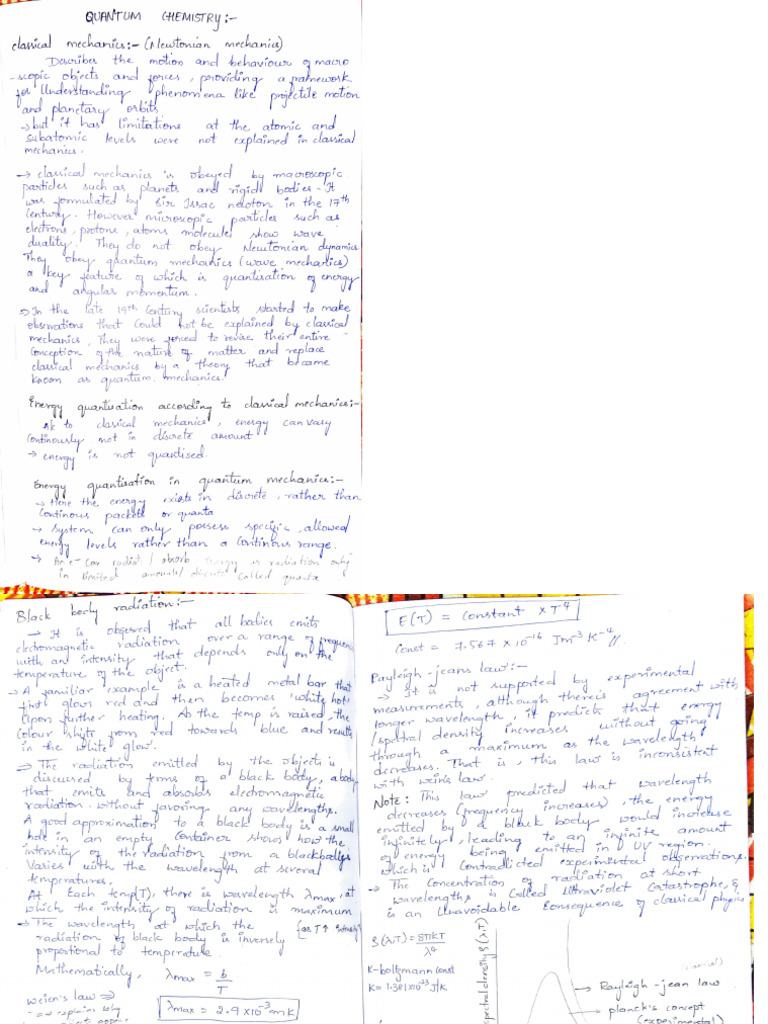 QUANTUM CHEMISTRY:-
classical mechanics:- (Newtonian mechanics)
Describes the motion and behaviour of macro
-scopic objects and forces, providing a framework
for Understanding phenomena like projectile motion
and planetary orbits
→ but it has limitations at the atomic and
subatomic levels were not explained in classical
mechanics.
→ classical mechanics is obeyed by macroscopic
particles such as planets and rigid bodies - It
was formulated by Sir Issac newton in the 17th
Century. However microscopic particles such as
electrons, protons, atoms molecules show wave
duality. They do not obey Newtonian dynamics
They obey quantum mechanics (wave mechanics)
a key feature of which is quantisation of energy
and angular momentum.
⇒ In the late 19th Century scientists started to make
observations that could not be explained by classical
mechanics, They were forced to revise their entire
Conception of the nature of matter and replace
classical mechanics by a theory that became
known as quantum mechanics.
Energy quantisation according to classical mechanics:-
to classical mechanics, energy can vary
Continously not in discrete amount
→ energy is not quantised.
Energy quantisation in quantum mechanics:-
→ Here the energy exists in discrete, rather than
Continous packets or quanta
→ System can only possess specific, allowed
energy levels rather than a Continous range.
radiat / absorb energy radiation only
in limited called quanta
Black body radiation:-
→ It is observed that all bodies emits
electromagnetic radiation over a range of frequence
with an intensity that depends only on the
temperature of the object.
→ A familiar example is a heated metal bar that
first glows red and then becomes 'white hot'
Upon further heating. As the temp is raised, the
Colour shifts from red towards blue and results
in the white glow.
⇒ The radiation emitted by the objects is
discussed by terms of a black body, a body
that emits and absorbs electromagnetic
radiation without favoring any wavelengths.
A good approximation to a black body is a small
hole in an empty Container shows how the
intensity of the radiation from a blackbodys
Varies with the wavelength at several
temperatures.
At Each temp(T), there is wavelength λmax, at
which the intensity of radiation is maximum
→ The wavelength at which the [as T↑
radiation of black body is inversely
propotional to temperature.
Mathematically, λmax = b/T
wein's law ⇒
λmax = 2.9 × 10⁻³ mK
explains why
E(T) = Constant × T⁴
Const = 7.567 × 10⁻¹⁶ Jm⁻³ K⁻⁴ //
Rayleigh-jeans law:-
→ It is not supported by experimental
measurements, although there is agreement with
longer wavelength, it predict that energy
/spectral density increases without going
through a maximum as the wavelength
decreases. That is, this law is inconsistent
with wein's law.
Note: This law predicted that wavelength
decreases (frequency increases), the energy
emitted by a black body would increase
infinitely, leading to an infinite amount
of energy being emitted in UV region.
which is Contradicted experimental observations.
→ The Concentration of radiation at short
wavelengths is Called Ultraviolet Catastrophe, &
is an Unavoidable Consequence of classical physics
ρ(λ,T) = 8πkT/λ⁴
K-boltzmann const
K = 1.381×10⁻²³ J/K
spectral density ρ(λ,T)
→ Rayleigh-jean law
→ planck's concept
(experimental)